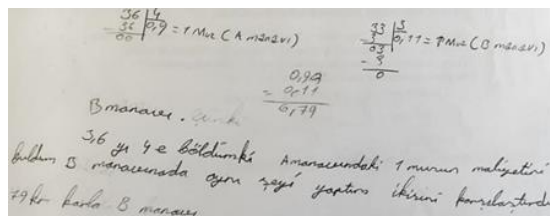 36 | 4
- 36 | 0,9 = 1 Muz (A manavı)
00
33 | 3
- 3 | 0,11 = 1 Muz (B manavı)
03
- 3
0
0,90
- 0,11
0,79
B manavı. çünkü
3,6 yı 4 e böldümki A manavındaki 1 muzun maliyetini
buldum B manavınada aynı şeyi yaptım ikisini karşılaştırdı
79 kr karla B manavı